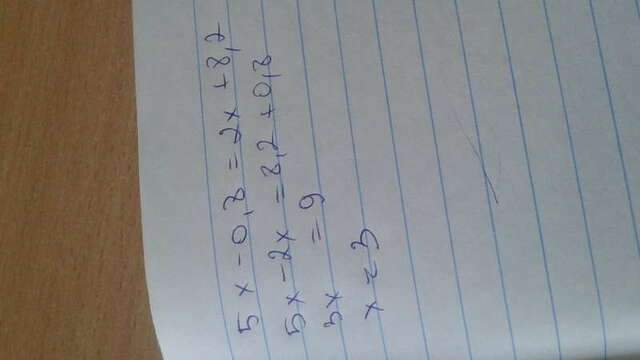 5x - 0,8 = 2x + 8,2
5x - 2x = 8,2 + 0,8
3x = 9
x = 3